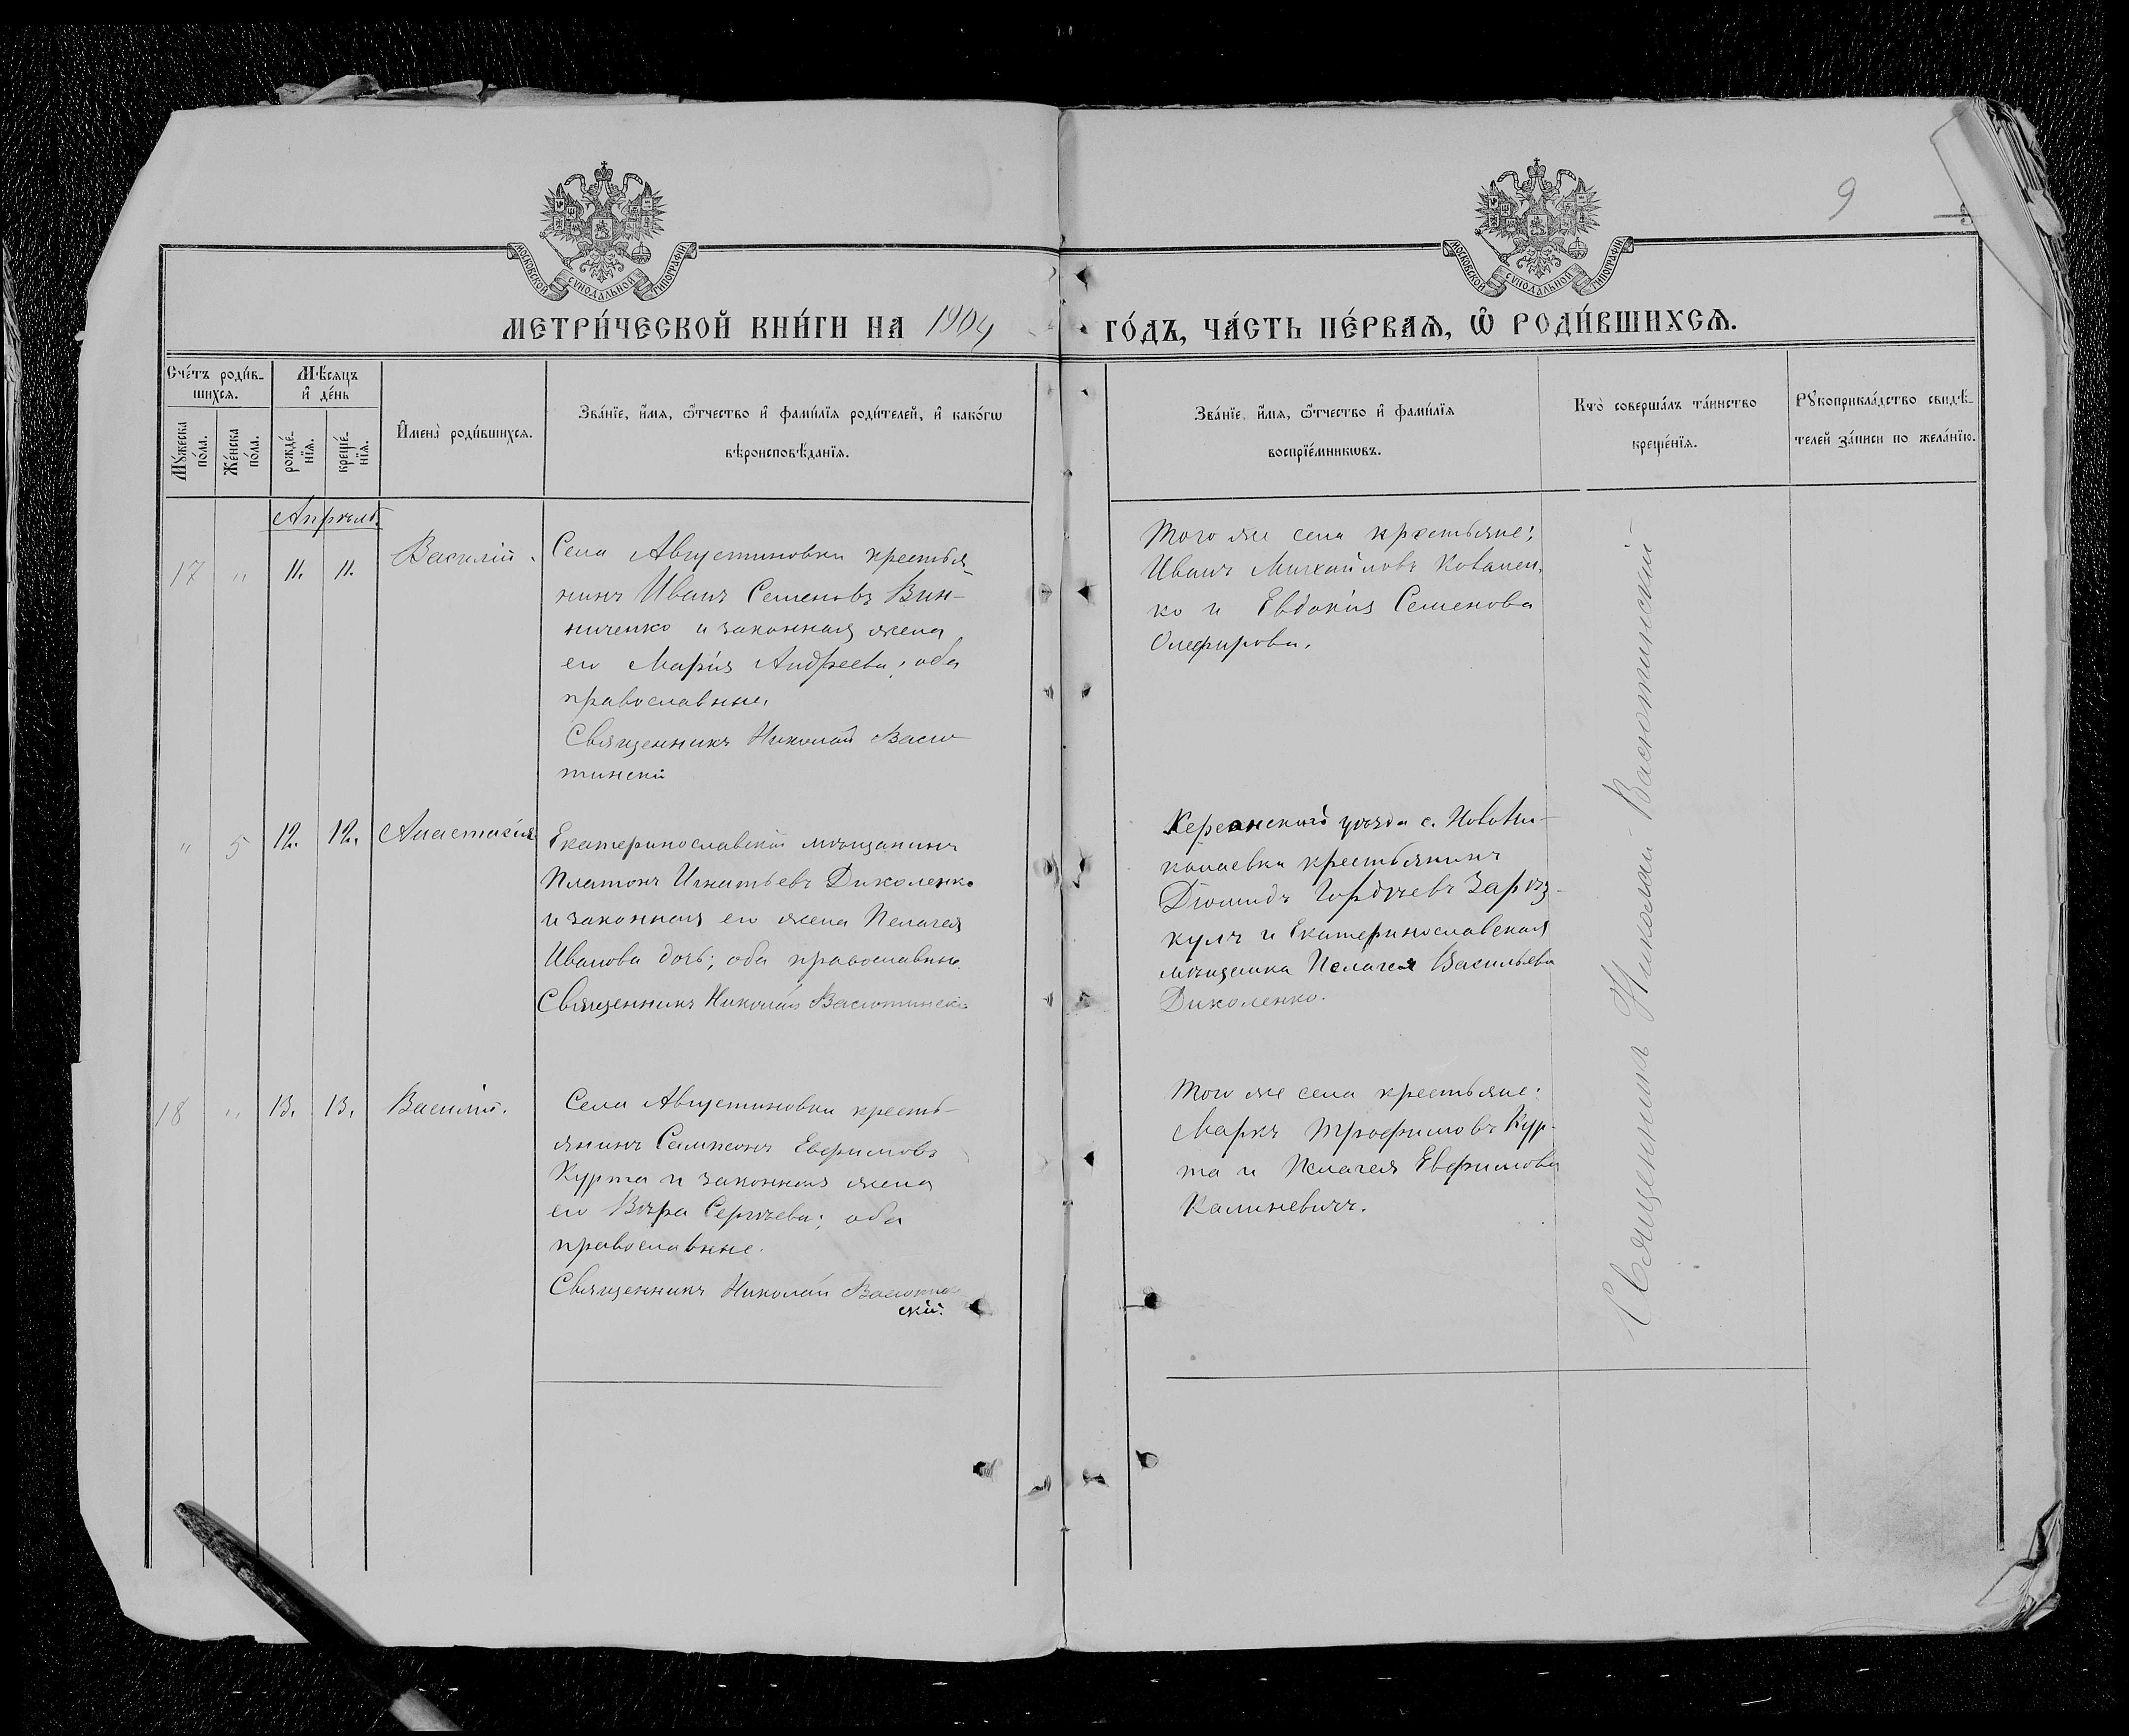 МОСКОВСКОЙ СѴНОДАЛЬНОЙ ТИПОГРАФІИ
МОСКОВСКОЙ СѴНОДАЛЬНОЙ ТИПОГРАФІИ
9
МЕТРИ́ЧЕСКОЙ КНИ́ГИ НА 1904 ГО́ДЪ, ЧА́СТЬ ПЕ́РВАѦ, Ѽ РОДИ́ВШИХСѦ.
Сче́тъ роди́в-
шихсѧ.
Мꙋ́жеска по́ла.
Же́нска по́ла.
Мѣ́сѧцъ
и҆ де́нь
рожде́-
нїѧ.
креще́-
нїѧ.
И҆мена̀ роди́вшихсѧ.
Зва́нїе, и҆́мѧ, ѻ҆́тчество и҆ фами́лїѧ роди́телей, и҆ како́гѡ
вѣроисповѣ́данїѧ.
Зва́нїе, и҆́мѧ, ѻ҆́тчество и҆ фами́лїѧ
воспрїе́мникѡвъ.
Кто̀ соверша́лъ та́инство
креще́нїѧ.
Рꙋкоприкла́дство свидѣ́-
телей за́писи по жела́нїю.
Апрѣль.
17 " 11. 11. Василій.
Села Августиновки крестья-
нинъ Иванъ Семеновъ Вин-
ниченко и законная жена
его Марія Андреева; оба
православные.
Священникъ Николай Васю-
тинскій
Того же села крестьяне:
Иванъ Михайловъ Ковален-
ко и Евдокія Семенова
Олефирова.
" 5 12. 12. Анастасія
Екатеринославскій мѣщанинъ
Платонъ Игнатьевъ Диколенко
и законная его жена Пелагея
Иванова дочь; оба православные.
Священникъ Николай Васютинскій
Херсонскаго уѣзда с. Новони-
колаевки крестьянинъ
Діомидъ Гордѣевъ
и Екатеринославская
мѣщанка Пелагея Васильева
Диколенко.
18 " 13. 13. Василій.
Села Августиновки кресть-
янинъ Сампсонъ Евфимовъ
Курта и законная жена
его Вѣра Сергѣева; оба
православные.
Священникъ Николай Васютин-
скій.
Того же села крестьяне:
Маркъ Трофимовъ Кур-
та и Пелагея Евфимова
Калиневичъ.
Священникъ Николай Васютинскій